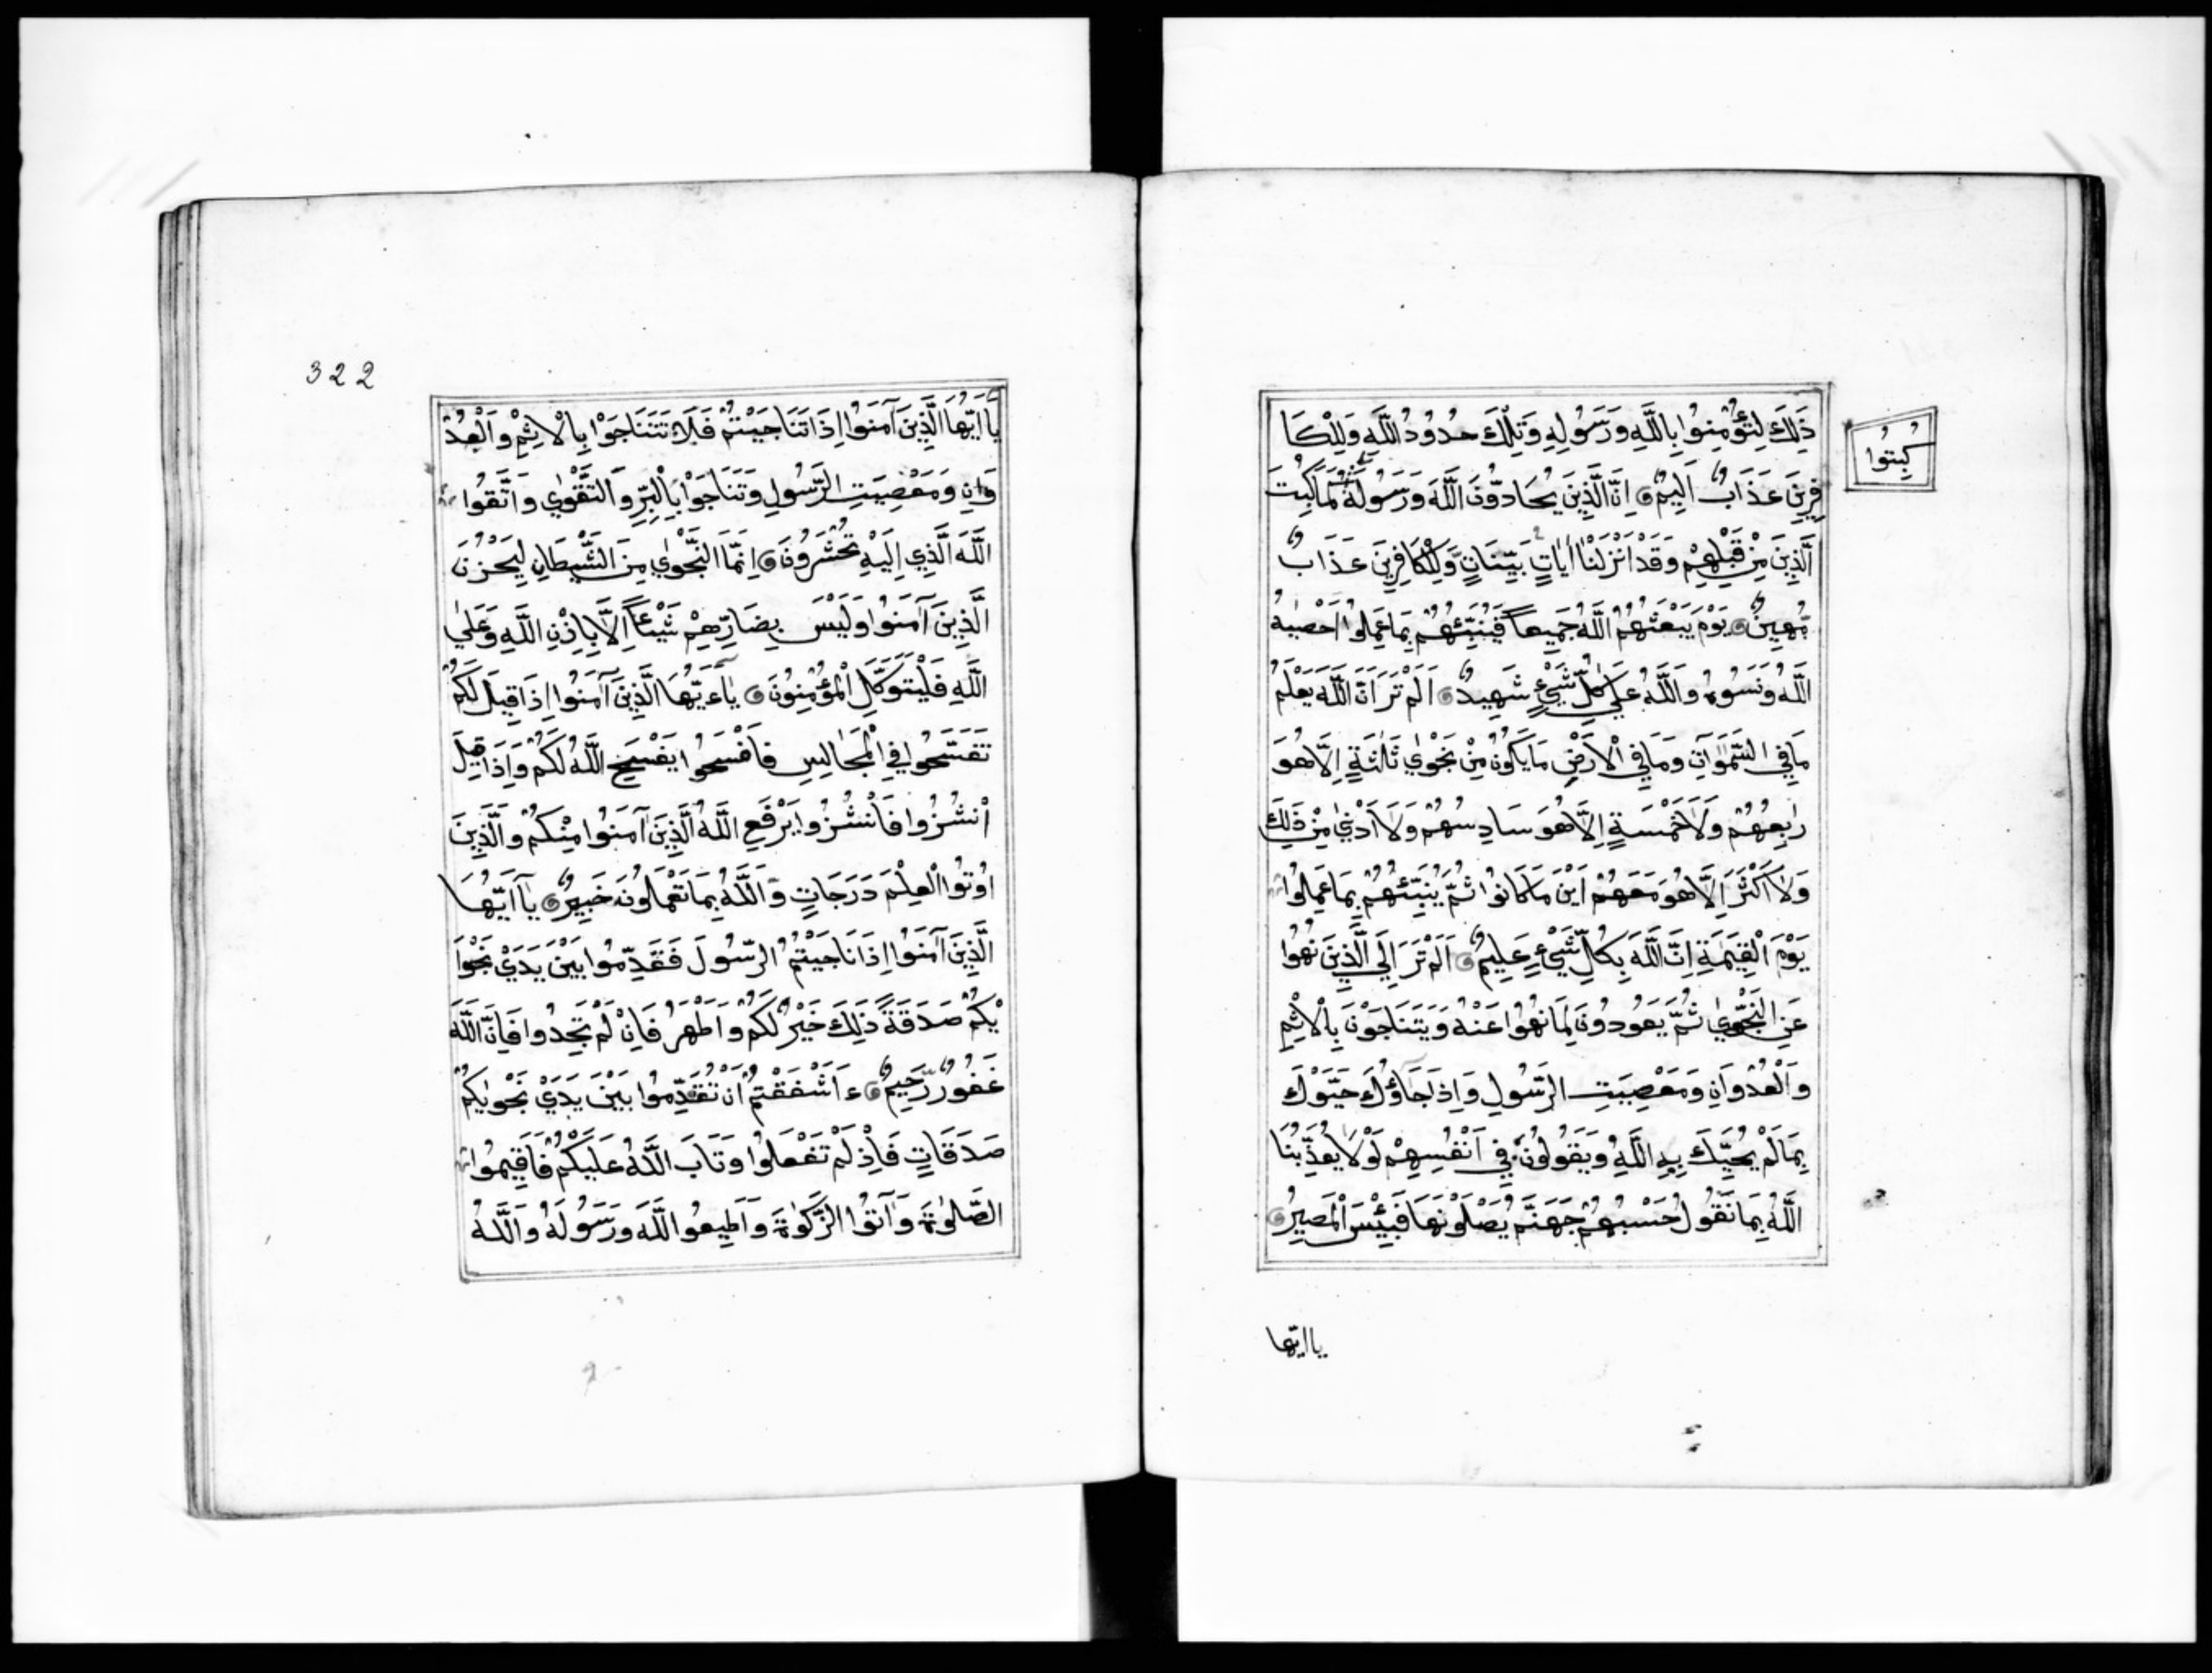 ذَٰلِكَ لِتُؤْمِنُوا بِاللَّهِ وَرَسُولِهِ وَتِلْكَ حُدُودُ اللَّهِ وَلِلْكَا
فِرِينَ عَذَابٌ اَلِيمٌ اِنَّ الَّذِينَ يُحَادُّونَ اللَّهَ وَرَسُولَهُ كَمَا كُبِتَ
كُبِتُوا
الَّذِينَ مِنْ قَبْلِهِمْ وَقَدْ اَنْزَلْنَا اٰيَاتٍ بَيِّنَاتٍ وَلِلْكَافِرِينَ عَذَابٌ
مُّهِينٌ يَوْمَ يَبْعَثُهُمُ اللَّهُ جَمِيعاً فَيُنَبِّئُهُمْ بِمَا عَمِلُوا اَحْصٰيهُ
اللَّهُ وَنَسُوهُ وَاللَّهُ عَلٰي كُلِّ شَيْءٍ شَهِيدٌ اَلَمْ تَرَ اَنَّ اللَّهَ يَعْلَمُ
مَا فِي السَّمٰوَاتِ وَمَا فِي الْاَرْضِ مَا يَكُونُ مِنْ نَجْوٰي ثَلٰثَةٍ اِلَّا هُوَ
رَابِعُهُمْ وَلَا خَمْسَةٍ اِلَّا هُوَ سَادِسُهُمْ وَلَا اَدْنٰي مِنْ ذٰلِكَ
وَلَا اَكْثَرَ اِلَّا هُوَ مَعَهُمْ اَيْنَ مَا كَانُوا ثُمَّ يُنَبِّئُهُمْ بِمَا عَمِلُوا
يَوْمَ الْقِيٰمَةِ اِنَّ اللَّهَ بِكُلِّ شَيْءٍ عَلِيمٌ اَلَمْ تَرَ اِلَي الَّذِينَ نُهُوا
عَنِ النَّجْوٰي ثُمَّ يَعُودُونَ لِمَا نُهُوا عَنْهُ وَيَتَنَاجَوْنَ بِالْاِثْمِ
وَالْعُدْوَانِ وَمَعْصِيَتِ الرَّسُولِ وَاِذَا جَاؤُكَ حَيَّوْكَ
بِمَا لَمْ يُحَيِّكَ بِهِ اللَّهُ وَيَقُولُونَ فِي اَنْفُسِهِمْ لَوْلَا يُعَذِّبُنَا
اللَّهُ بِمَا نَقُولُ حَسْبُهُمْ جَهَنَّمُ يَصْلَوْنَهَا فَبِئْسَ الْمَصِيرُ
يا ايّها
322
يَا اَيُّهَا الَّذِينَ آمَنُوا اِذَا تَنَاجَيْتُمْ فَلَا تَتَنَاجَوْا بِالْاِثْمِ وَالْعُدْ
وَانِ وَمَعْصِيَتِ الرَّسُولِ وَتَنَاجَوْا بِالْبِرِّ وَالتَّقْوٰي وَاتَّقُوا
اللَّهَ الَّذِي اِلَيْهِ تُحْشَرُونَ اِنَّمَا النَّجْوٰي مِنَ الشَّيْطَانِ لِيَحْزُنَ
الَّذِينَ آمَنُوا وَلَيْسَ بِضَارِّهِمْ شَيْئاً اِلَّا بِاِذْنِ اللَّهِ وَعَلَي
اللَّهِ فَلْيَتَوَكَّلِ الْمُؤْمِنُونَ يٰاءَيُّهَا الَّذِينَ آمَنُوا اِذَا قِيلَ لَكُمْ
تَفَسَّحُوا فِي الْمَجَالِسِ فَافْسَحُوا يَفْسَحِ اللَّهُ لَكُمْ وَاِذَا قِيلَ
اُنْشُزُوا فَانْشُزُوا يَرْفَعِ اللَّهُ الَّذِينَ آمَنُوا مِنْكُمْ وَالَّذِينَ
اُوتُوا الْعِلْمَ دَرَجَاتٍ وَاللَّهُ بِمَا تَعْمَلُونَ خَبِيرٌ يَا اَيُّهَا
الَّذِينَ آمَنُوا اِذَا نَاجَيْتُمُ الرَّسُولَ فَقَدِّمُوا بَيْنَ يَدَيْ نَجْوَا
يْكُمْ صَدَقَةً ذٰلِكَ خَيْرٌ لَكُمْ وَاَطْهَرُ فَاِنْ لَمْ تَجِدُوا فَاِنَّ اللَّهَ
غَفُورٌ رَّحِيمٌ ءَاَشْفَقْتُمْ اَنْ تُقَدِّمُوا بَيْنَ يَدَيْ نَجْوٰيكُمْ
صَدَقَاتٍ فَاِذْ لَمْ تَفْعَلُوا وَتَابَ اللَّهُ عَلَيْكُمْ فَاَقِيمُوا
الصَّلٰوةَ وَآتُوا الزَّكٰوةَ وَاَطِيعُوا اللَّهَ وَرَسُولَهُ وَاللَّهُ